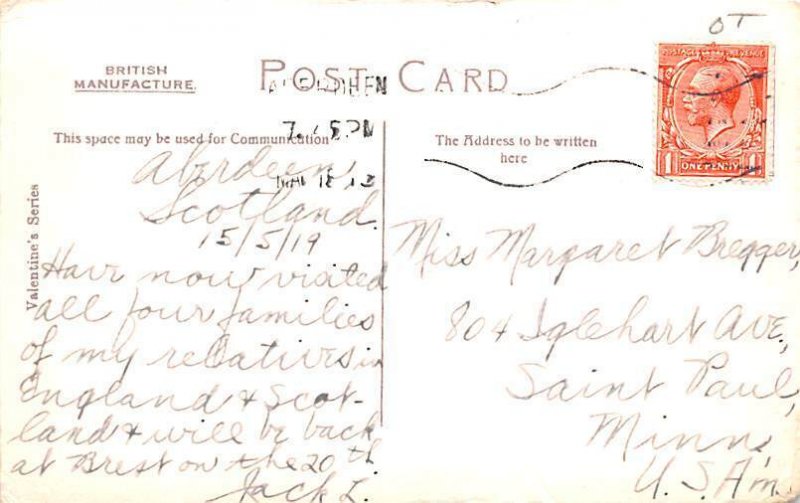 OT
BRITISH
MANUFACTURE.
POST CARD
POSTAGE REVENUE
1 ONE PENNY 1
This space may be used for Communication
The Address to be written
here
Valentine's Series
Aberdeen,
Scotland.
15/5/19
Have now visited
all four families
of my relatives in
England & Scot-
land & will be back
at Brest on the 20th.
Jack L.
Miss Margaret Bregger,
804 Iglehart Ave.,
Saint Paul,
Minn,
U.S.A'm.